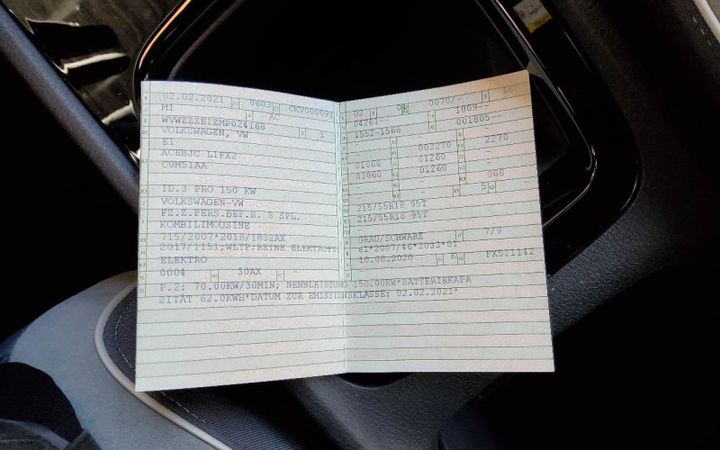 02.02.2021 0603 CKV000091
M1 AC
WVWZZZE1ZMP024168 1
VOLKSWAGEN, VW
E1
ACEBJC L1FX2
COM51AA
ID.3 PRO 150 KW
VOLKSWAGEN-VW
FZ.Z.PERS.BEF.B. 8 SPL.
KOMBILIMOUSINE
715/2007*2018/1832AX
2017/1151;WLTP;REINE ELEKTROFZ
ELEKTRO
0004 30AX -
02 0070/-- 160
04261-- 1809--
1552-1568 001805--
- 002270 2270
01060 01260 -
01060 01260 -
- - 068
- - 5
215/55R18 95T
215/55R18 95T
-
GRAU/SCHWARZ 7/9
e1*2007/46*2033*01
10.08.2020 K FX511142
P.2: 70.00KW/30MIN; NENNLEISTUNG 150.00KW*BATTERIEKAPA
ZITÄT 62.0KWH*DATUM ZUR EMISSIONSKLASSE: 02.02.2021*